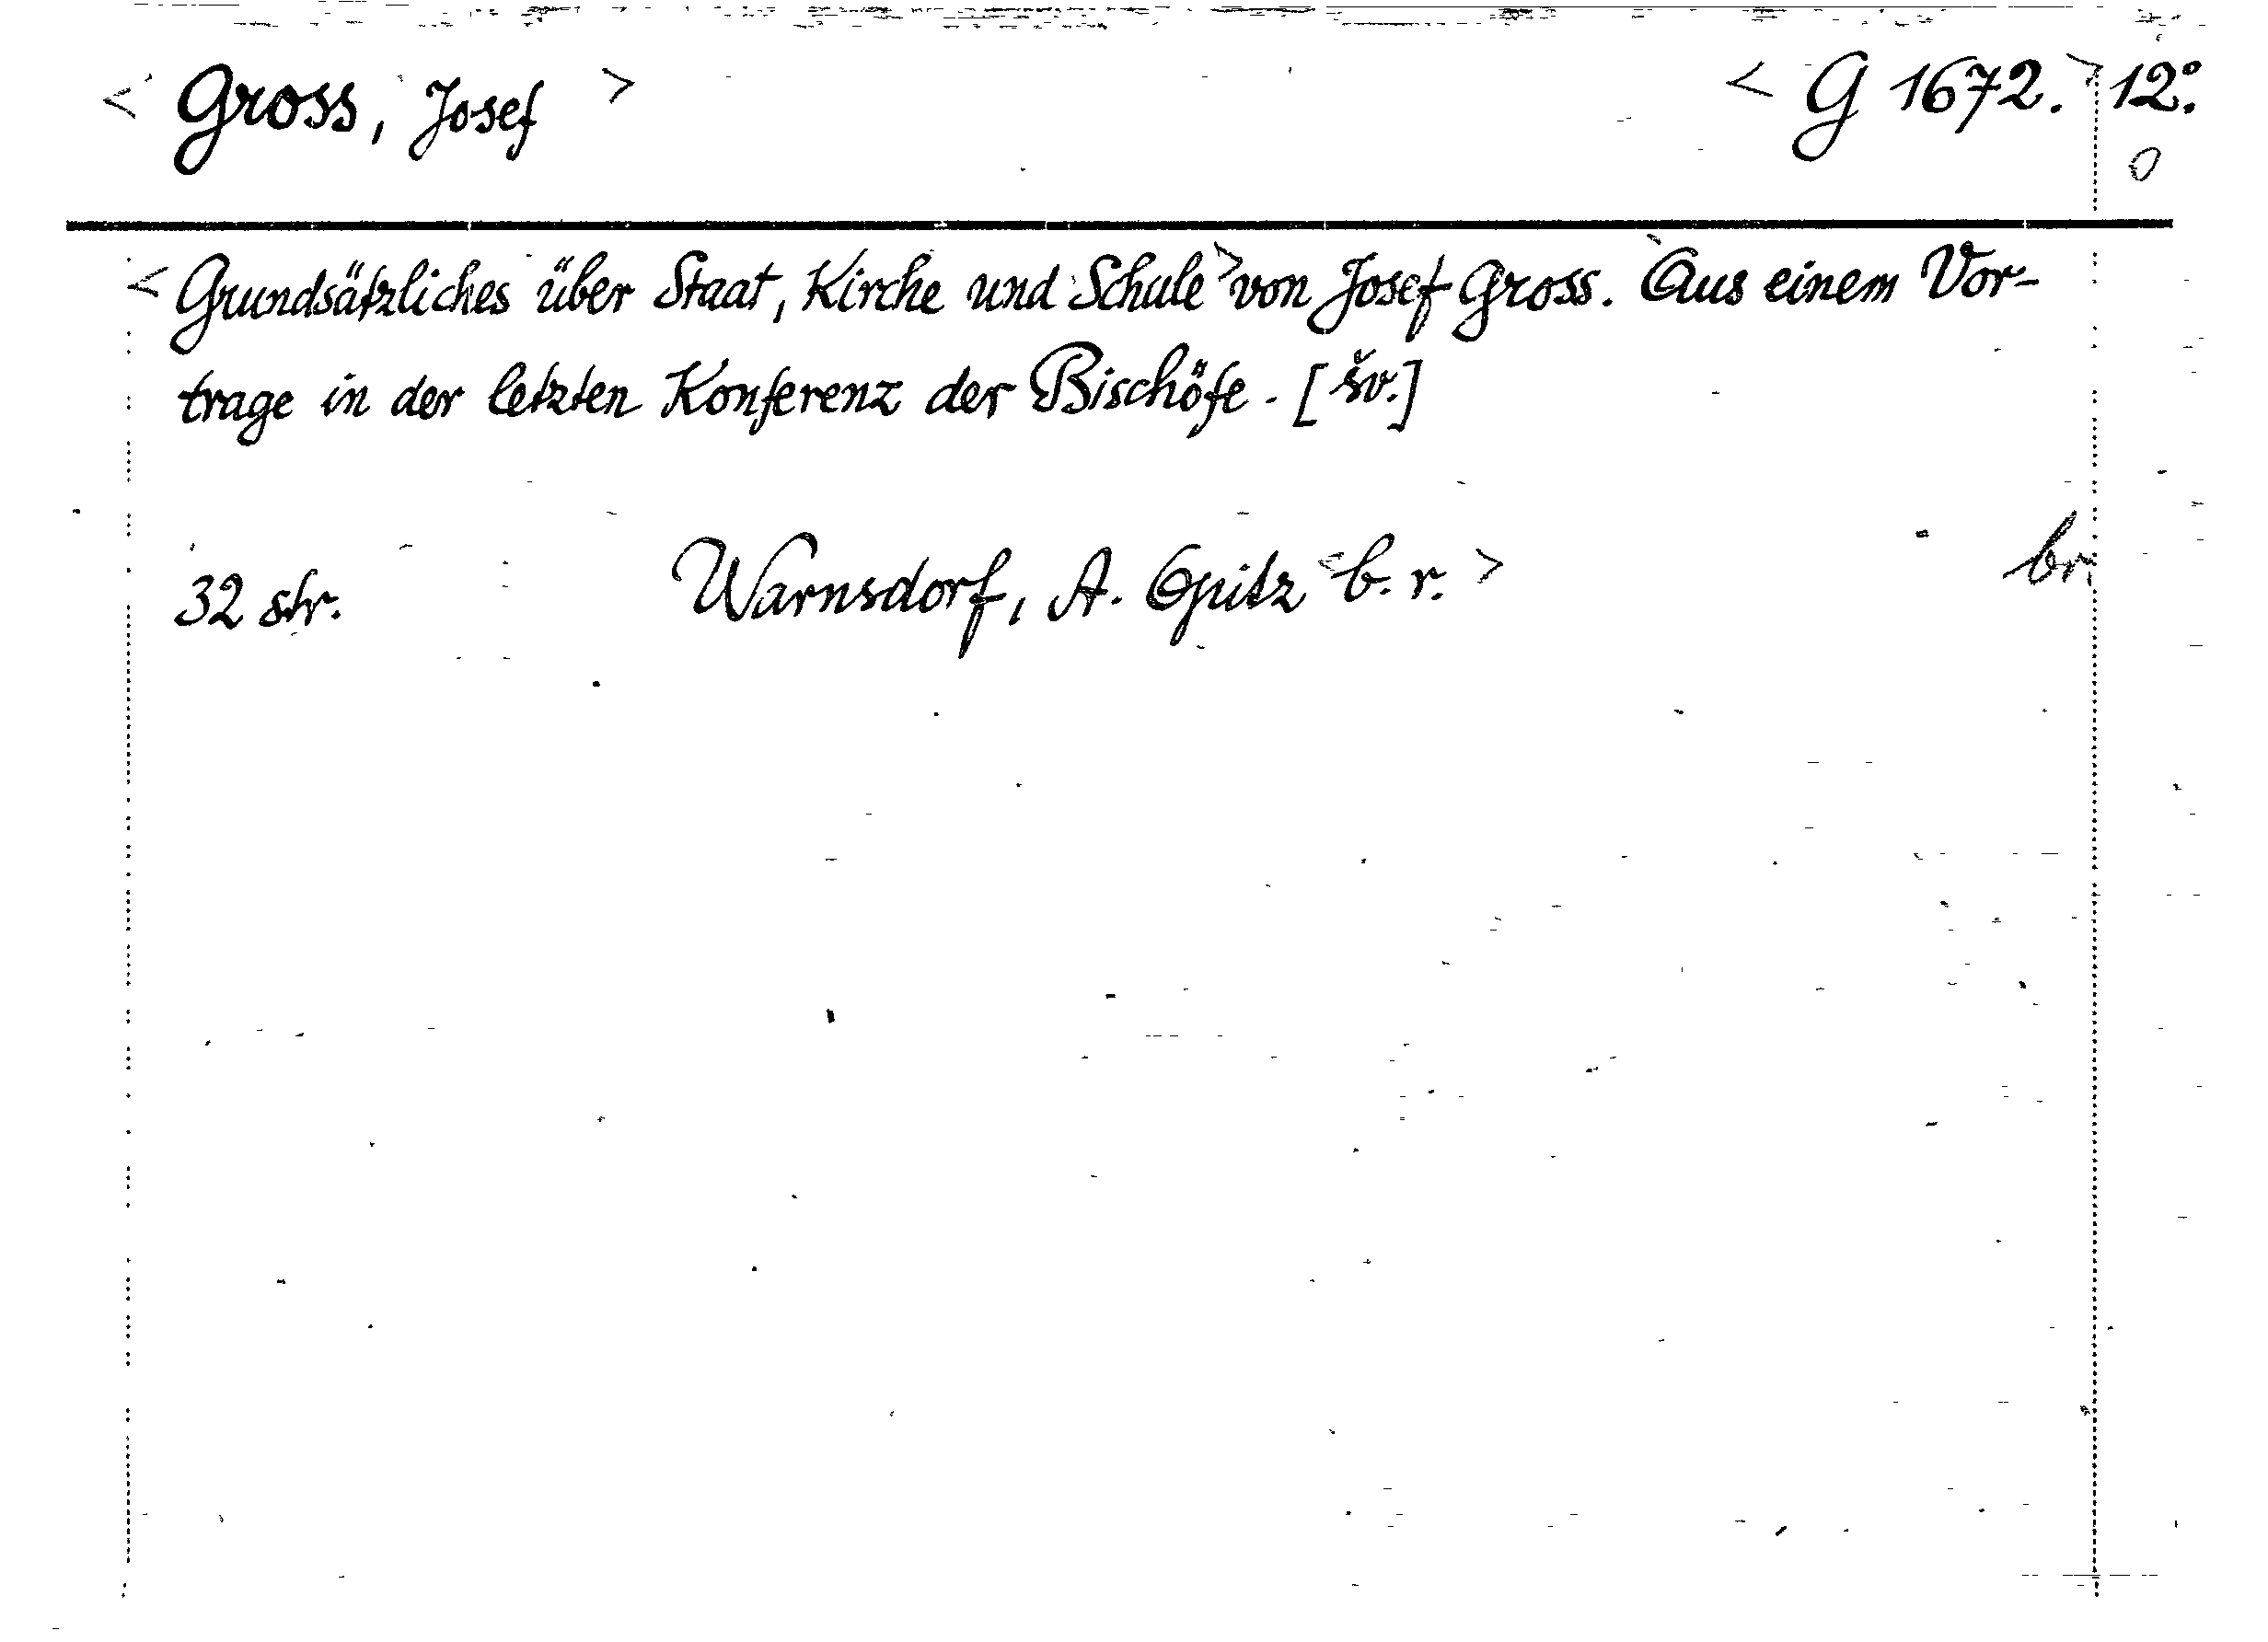 < Gross, Josef > < G 1672. > 12°.
0
< Grundsätzliches über Staat, Kirche und Schule > von Josef Gross. Aus einem Vor-
trage in der letzten Konferenz der Bischöfe. [šv.]
32 str. Warnsdorf, A. Opitz < b. r. > br.